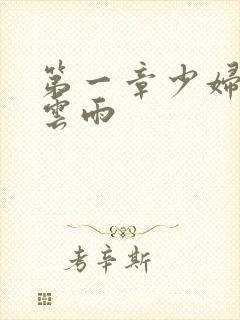 第一章少婦
雲雨
考辛斯